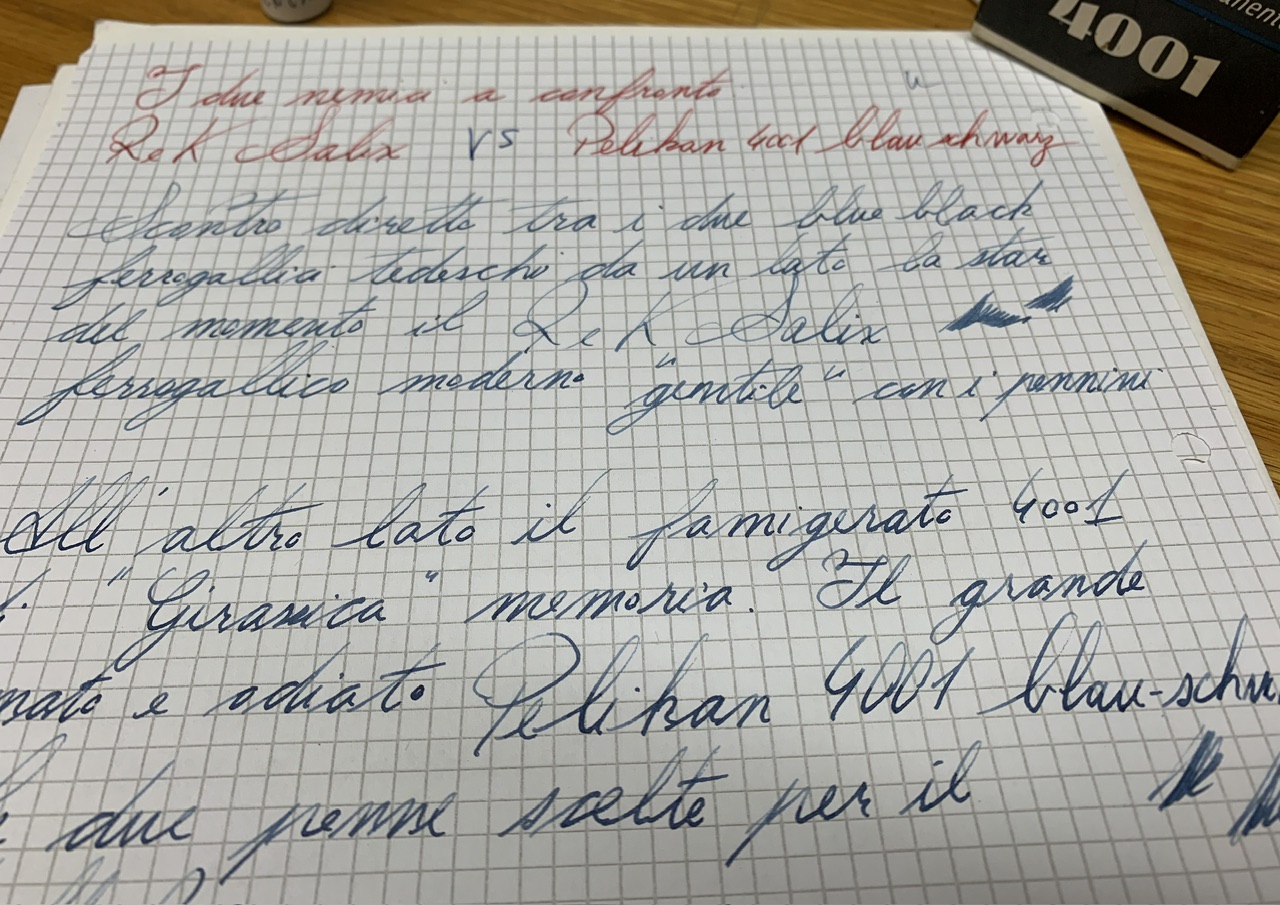 4001
I due nemici a confronto
R&K Salix vs Pelikan 4001 blau schwarz
Scontro diretto tra i due blue black
ferrogallici tedeschi da un lato la star
del momento il R&K Salix
ferrogallico moderno "gentile" con i pennini
All'altro lato il famigerato 4001
"Giransica" memoria. Il grande
mato e odiato Pelikan 4001 blau-schw
due penne scelte per il